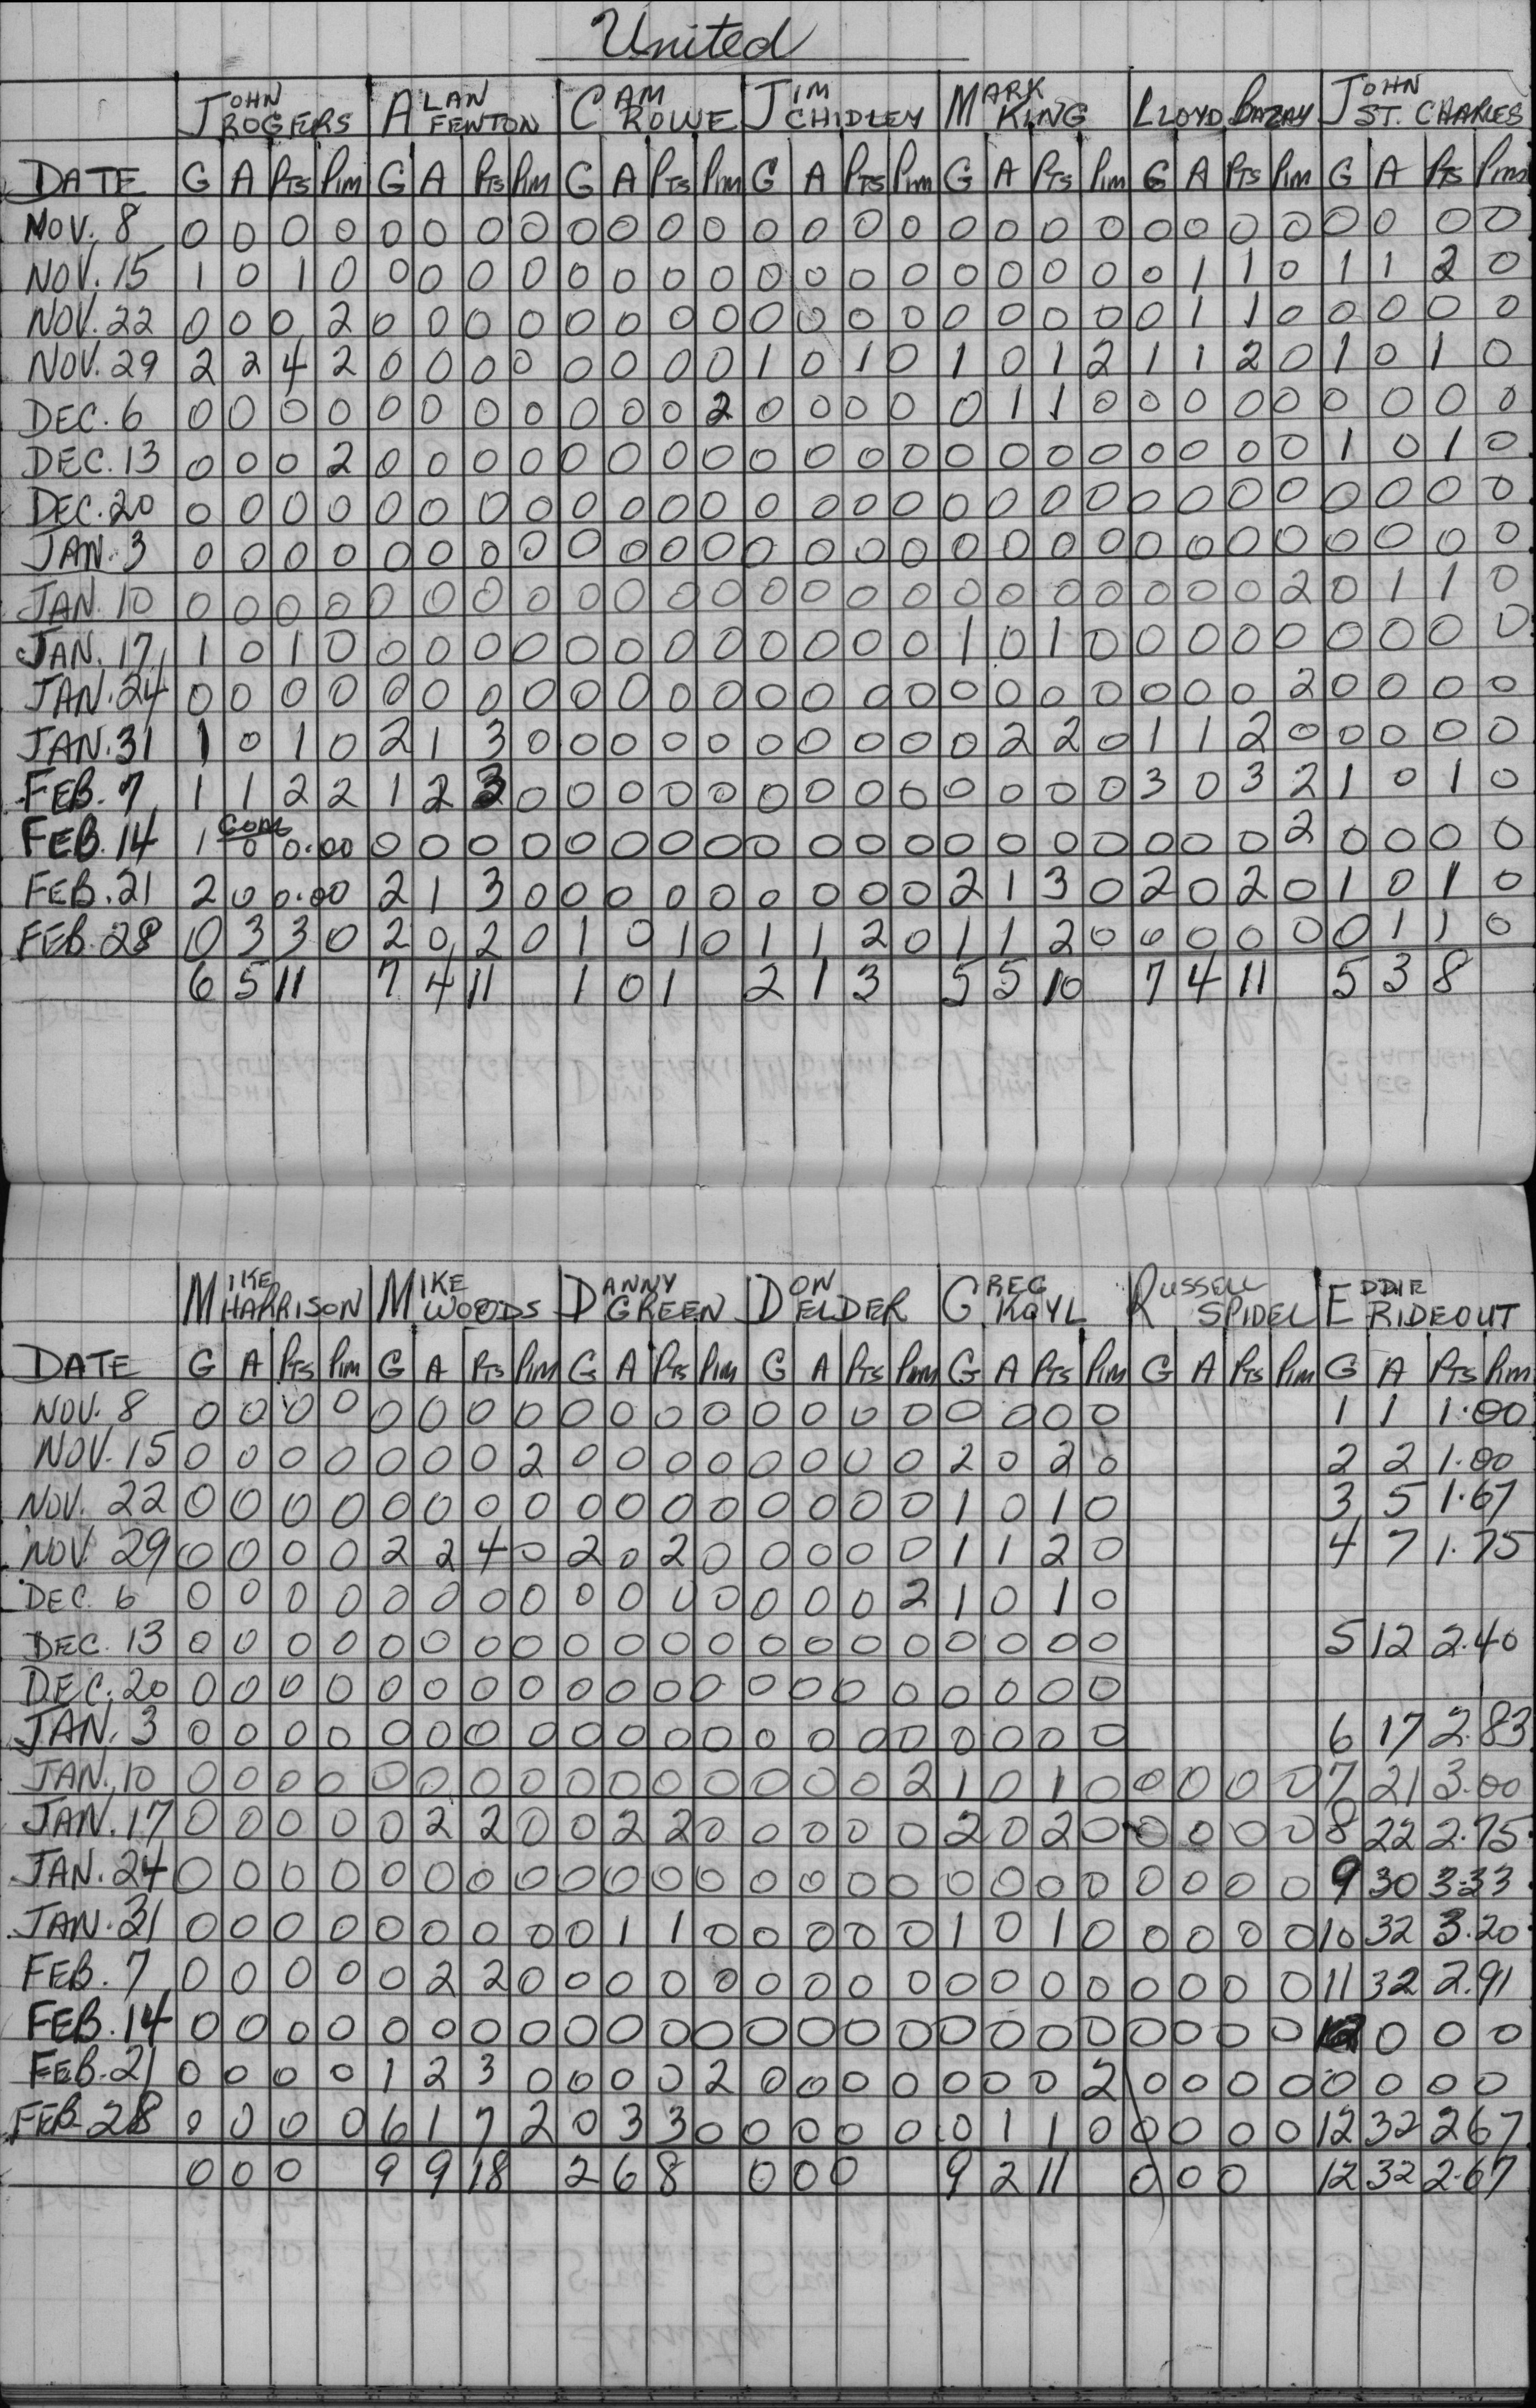 United
JOHN ROGERS ALAN FENTON CAM ROWE JIM CHIDLEY MARK KING LLOYD BAZAY JOHN ST. CHARLES
DATE G A PTS PIM G A PTS PIM G A PTS PIM G A PTS PIM G A PTS PIM G A PTS PIM G A PTS PIM
NOV. 8 0 0 0 0 0 0 0 0 0 0 0 0 0 0 0 0 0 0 0 0 0 0 0 0 0 0 0 0
NOV. 15 1 0 1 0 0 0 0 0 0 0 0 0 0 0 0 0 0 0 0 0 0 1 1 0 1 1 2 0
NOV. 22 0 0 0 2 0 0 0 0 0 0 0 0 0 0 0 0 0 0 0 0 0 1 1 0 0 0 0 0
NOV. 29 2 2 4 2 0 0 0 0 0 0 0 0 1 0 1 0 1 0 1 2 1 1 2 0 1 0 1 0
DEC. 6 0 0 0 0 0 0 0 0 0 0 0 2 0 0 0 0 0 1 1 0 0 0 0 0 0 0 0 0
DEC. 13 0 0 0 2 0 0 0 0 0 0 0 0 0 0 0 0 0 0 0 0 0 0 0 0 1 0 1 0
DEC. 20 0 0 0 0 0 0 0 0 0 0 0 0 0 0 0 0 0 0 0 0 0 0 0 0 0 0 0 0
JAN. 3 0 0 0 0 0 0 0 0 0 0 0 0 0 0 0 0 0 0 0 0 0 0 0 0 0 0 0 0
JAN. 10 0 0 0 0 0 0 0 0 0 0 0 0 0 0 0 0 0 0 0 0 0 0 0 2 0 1 1 0
JAN. 17 1 0 1 0 0 0 0 0 0 0 0 0 0 0 0 0 1 0 1 0 0 0 0 0 0 0 0 0
JAN. 24 0 0 0 0 0 0 0 0 0 0 0 0 0 0 0 0 0 0 0 0 0 0 0 2 0 0 0 0
JAN. 31 1 0 1 0 2 1 3 0 0 0 0 0 0 0 0 0 0 2 2 0 1 1 2 0 0 0 0 0
FEB. 7 1 1 2 2 1 2 3 0 0 0 0 0 0 0 0 0 0 0 0 0 3 0 3 2 1 0 1 0
FEB. 14 1 GOAL 0 0.00 0 0 0 0 0 0 0 0 0 0 0 0 0 0 0 0 0 0 0 2 0 0 0 0
FEB. 21 2 0 0.00 2 1 3 0 0 0 0 0 0 0 0 0 2 1 3 0 2 0 2 0 1 0 1 0
FEB. 28 0 3 3 0 2 0 2 0 1 0 1 0 1 1 2 0 1 1 2 0 0 0 0 0 0 1 1 0
6 5 11 7 4 11 1 0 1 2 1 3 5 5 10 7 4 11 5 3 8
MIKE HARRISON MIKE WOODS DANNY GREEN DON ELDER GREG KOYL RUSSELL SPIDEL EDDIE RIDEOUT
DATE G A PTS PIM G A PTS PIM G A PTS PIM G A PTS PIM G A PTS PIM G A PTS PIM G A PTS PIM
NOV. 8 0 0 0 0 0 0 0 0 0 0 0 0 0 0 0 0 0 0 0 0 1 1 1.00
NOV. 15 0 0 0 0 0 0 0 2 0 0 0 0 0 0 0 0 2 0 2 0 2 2 1.00
NOV. 22 0 0 0 0 0 0 0 0 0 0 0 0 0 0 0 0 1 0 1 0 3 5 1.67
NOV. 29 0 0 0 0 2 2 4 0 2 0 2 0 0 0 0 0 1 1 2 0 4 7 1.75
DEC. 6 0 0 0 0 0 0 0 0 0 0 0 0 0 0 0 2 1 0 1 0
DEC. 13 0 0 0 0 0 0 0 0 0 0 0 0 0 0 0 0 0 0 0 0 5 12 2.40
DEC. 20 0 0 0 0 0 0 0 0 0 0 0 0 0 0 0 0 0 0 0 0
JAN. 3 0 0 0 0 0 0 0 0 0 0 0 0 0 0 0 0 0 0 0 0 6 17 2.83
JAN. 10 0 0 0 0 0 0 0 0 0 0 0 0 0 0 0 2 1 0 1 0 0 0 0 0 7 21 3.00
JAN. 17 0 0 0 0 0 2 2 0 0 2 2 0 0 0 0 0 2 0 2 0 0 0 0 0 8 22 2.75
JAN. 24 0 0 0 0 0 0 0 0 0 0 0 0 0 0 0 0 0 0 0 0 0 0 0 0 9 30 3.33
JAN. 31 0 0 0 0 0 0 0 0 0 1 1 0 0 0 0 0 1 0 1 0 0 0 0 0 10 32 3.20
FEB. 7 0 0 0 0 0 2 2 0 0 0 0 0 0 0 0 0 0 0 0 0 0 0 0 0 11 32 2.91
FEB. 14 0 0 0 0 0 0 0 0 0 0 0 0 0 0 0 0 0 0 0 0 0 0 0 0 0 0 0
FEB. 21 0 0 0 0 1 2 3 0 0 0 0 2 0 0 0 0 0 0 0 2 0 0 0 0 0 0 0 0
FEB 28 0 0 0 0 6 1 7 2 0 3 3 0 0 0 0 0 0 1 1 0 0 0 0 0 12 32 2.67
0 0 0 9 9 18 2 6 8 0 0 0 9 2 11 0 0 0 12 32 2.67